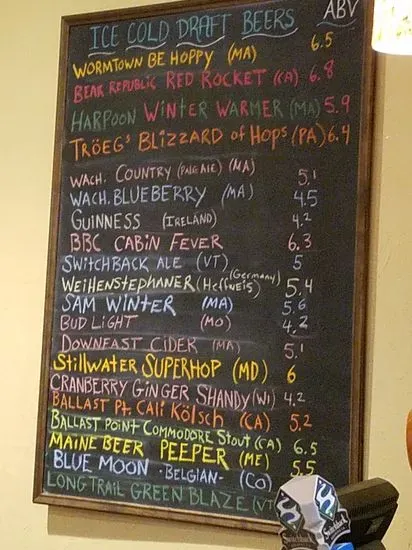 ICE COLD DRAFT BEERS ABV
WORMTOWN BE HOPPY (MA) 6.5
BEAR REPUBLIC RED ROCKET (CA) 6.8
HARPOON WINTER WARMER (MA) 5.9
TRÖEG'S BLIZZARD of HOPS (PA) 6.4
WACH. COUNTRY (PALE ALE) (MA) 5.1
WACH. BLUEBERRY (MA) 4.5
GUINNESS (IRELAND) 4.2
BBC CABIN FEVER 6.3
SWITCHBACK ALE (VT) 5
WEIHENSTEPHANER (Heffweis) (Germany) 5.4
SAM WINTER (MA) 5.6
BUD LIGHT (MO) 4.2
DOWNEAST CIDER (MA) 5.1
Stillwater SUPERHOP (MD) 6
CRANBERRY GINGER SHANDY (WI) 4.2
BALLAST Pt. CALI KÖLSCH (CA) 5.2
BALLAST POINT COMMODORE STOUT (CA) 6.5
MAINE BEER PEEPER (ME) 5.5
BLUE MOON -BELGIAN- (CO)
LONG TRAIL GREEN BLAZE (VT
Switchback